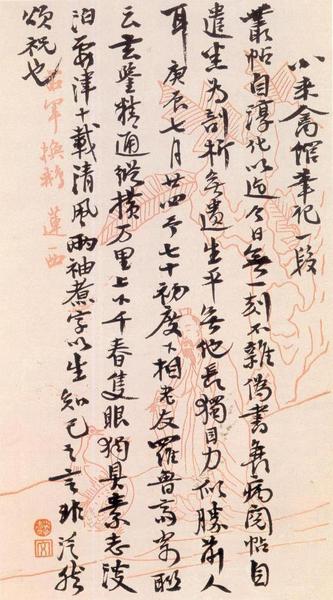 小來禽館筆記一段
叢帖自淳化以迄今日無一刻不雜偽書養病閱帖自
遣為剖析無遺生平無他長獨目力似勝前人
耳庚辰七月廿四予七十初度下相老友羅魯齋寄聯
云玄鑒精通縱橫万里上下千春隻眼獨具素志淡
泊要津十載清風兩袖煮字以生知己之言非泛然
頌祝也
右軍換鵝 蓮西